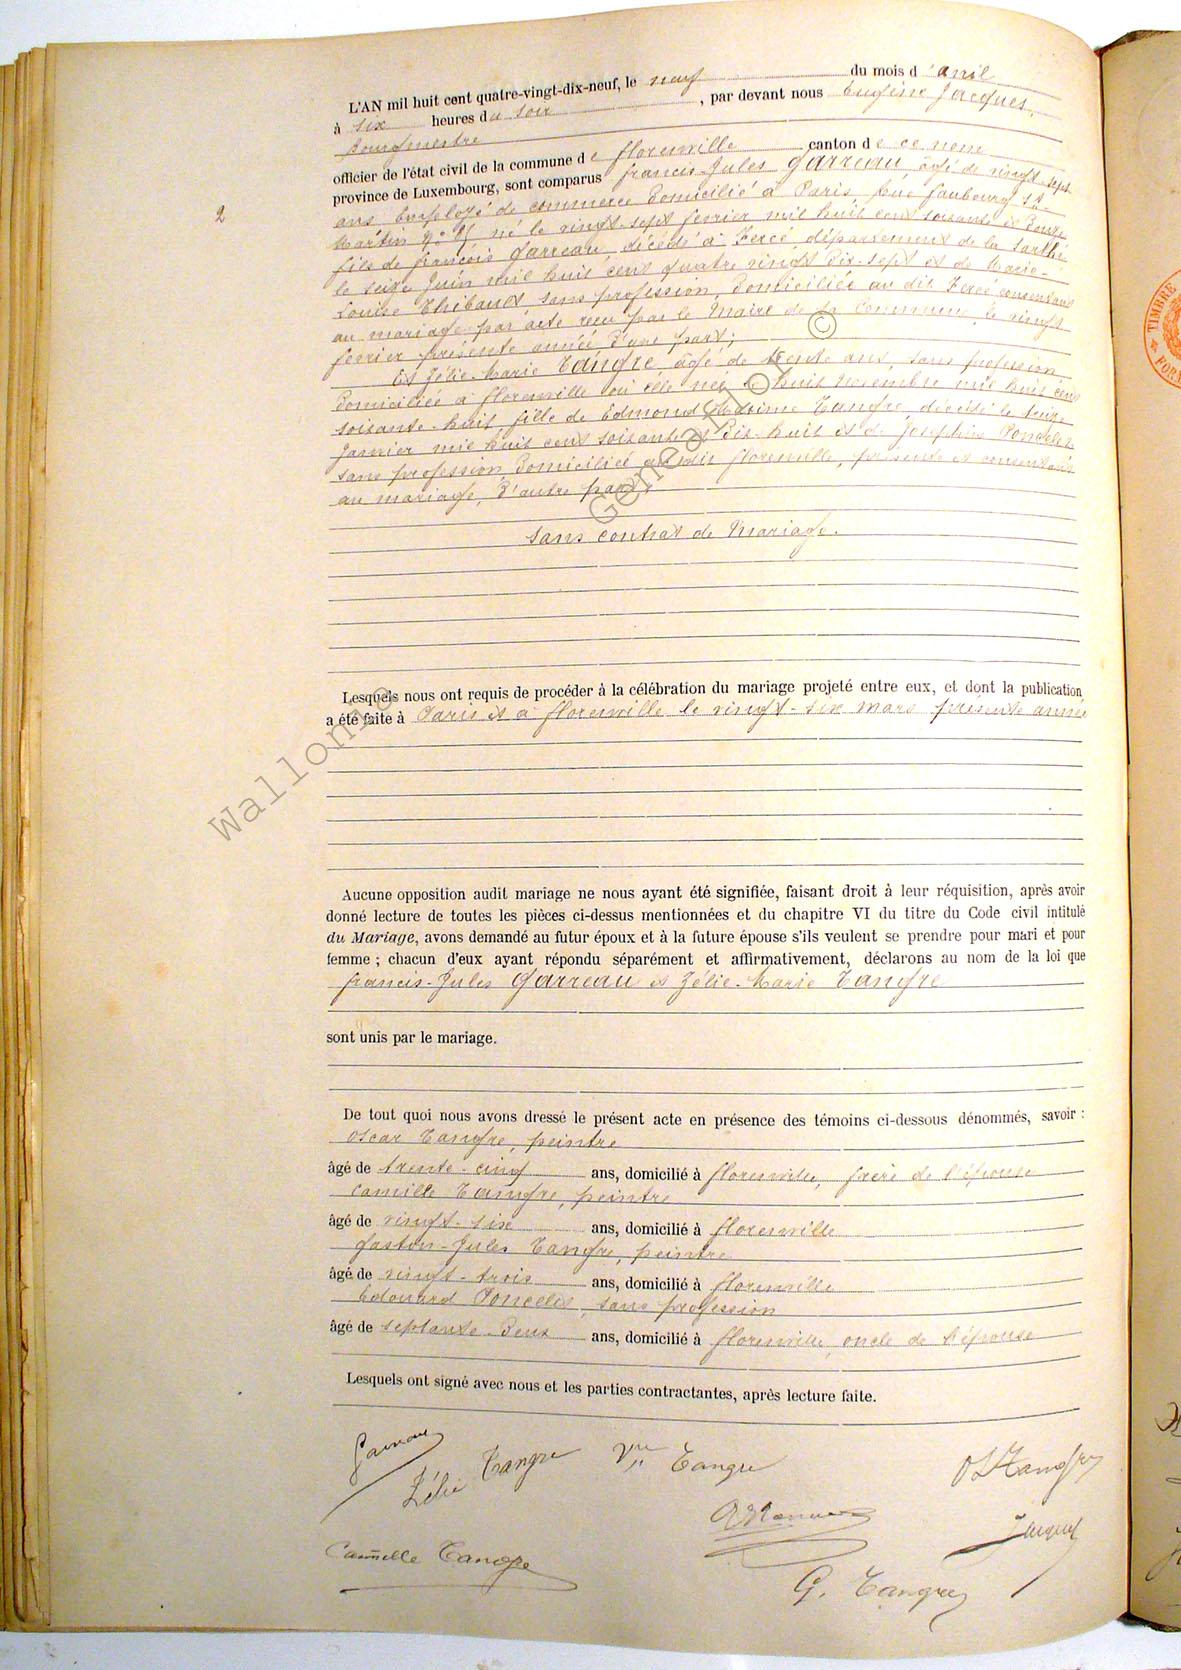 L'AN mil huit cent quatre-vingt-dix-neuf, le neuf du mois d'avril
à six heures du soir, par devant nous Eugène Jacques,
bourgmestre
officier de l'état civil de la commune de Florenville canton de ce nom
province de Luxembourg, sont comparus Francis-Jules Garreau âgé de vingt-sept
ans Employé de commerce domicilié à Paris, Rue Faubourg St-
Martin né le vingt-sept février mil huit cent soixante et douze
fils de François Garreau, décédé à Fercé, département de la Sarthe
le seize Juin mil huit cent quatre vingt dix-sept et de Marie-
Louise Thibault sans profession, domiciliée au dit Fercé consentant
au mariage par acte reçu par le Maire de la commune le vingt
février présente année d'une part;
Et Zélie-Marie Tangre, âgé de trente ans, sans profession
domiciliée à Florenville où elle née le huit Novembre mil huit cent
soixante-huit, fille de Edmond Tangre, décédé le
janvier mil huit cent soixante et dix-huit et de Joséphine Poncelet
sans profession domiciliée au dit Florenville, présente et consentante
au mariage, d'autre part;
sans contrat de Mariage.
2
Lesquels nous ont requis de procéder à la célébration du mariage projeté entre eux, et dont la publication
a été faite à Paris et à Florenville le vingt-six mars présente année
Aucune opposition audit mariage ne nous ayant été signifiée, faisant droit à leur réquisition, après avoir
donné lecture de toutes les pièces ci-dessus mentionnées et du chapitre VI du titre du Code civil intitulé
du Mariage, avons demandé au futur époux et à la future épouse s'ils veulent se prendre pour mari et pour
femme ; chacun d'eux ayant répondu séparément et affirmativement, déclarons au nom de la loi que
Francis-Jules Garreau et Zélie-Marie Tangre
sont unis par le mariage.
De tout quoi nous avons dressé le présent acte en présence des témoins ci-dessous dénommés, savoir :
Oscar Tangre, peintre
âgé de trente-cinq ans, domicilié à Florenville, frère de l'épouse
Camille Tangre, peintre
âgé de vingt-six ans, domicilié à Florenville
Gaston-Jules Tangre, peintre
âgé de vingt-trois ans, domicilié à Florenville
Edouard Poncelet, sans profession
âgé de septante-deux ans, domicilié à Florenville, oncle de l'épouse
Lesquels ont signé avec nous et les parties contractantes, après lecture faite.
Garreau
Zélie Tangre
Vve Tangre
Tangre
Jacques
Camille Tangre
G. Tangre
Wallonie Geneanor ©
TIMBRE